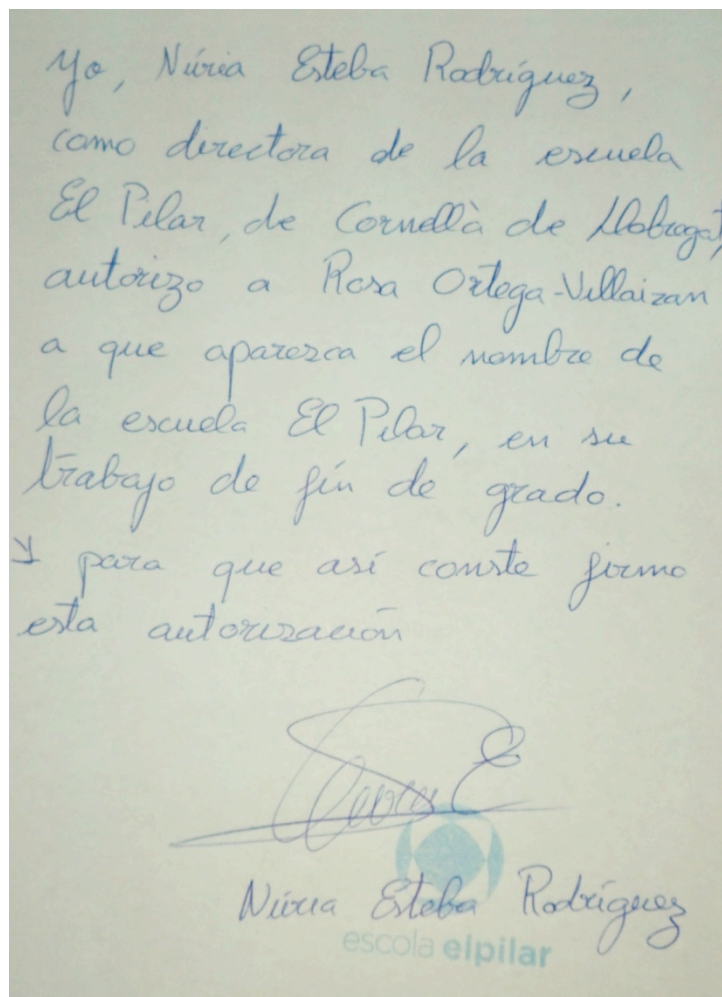 Yo, Núria Esteba Rodríguez,
como directora de la escuela
El Pilar, de Cornellà de Llobregat,
autorizo a Rosa Ortega-Villaizan
a que aparezca el nombre de
la escuela El Pilar, en su
trabajo de fin de grado.
Y para que así conste firmo
esta autorización
Núria Esteba Rodríguez
escola elpilar